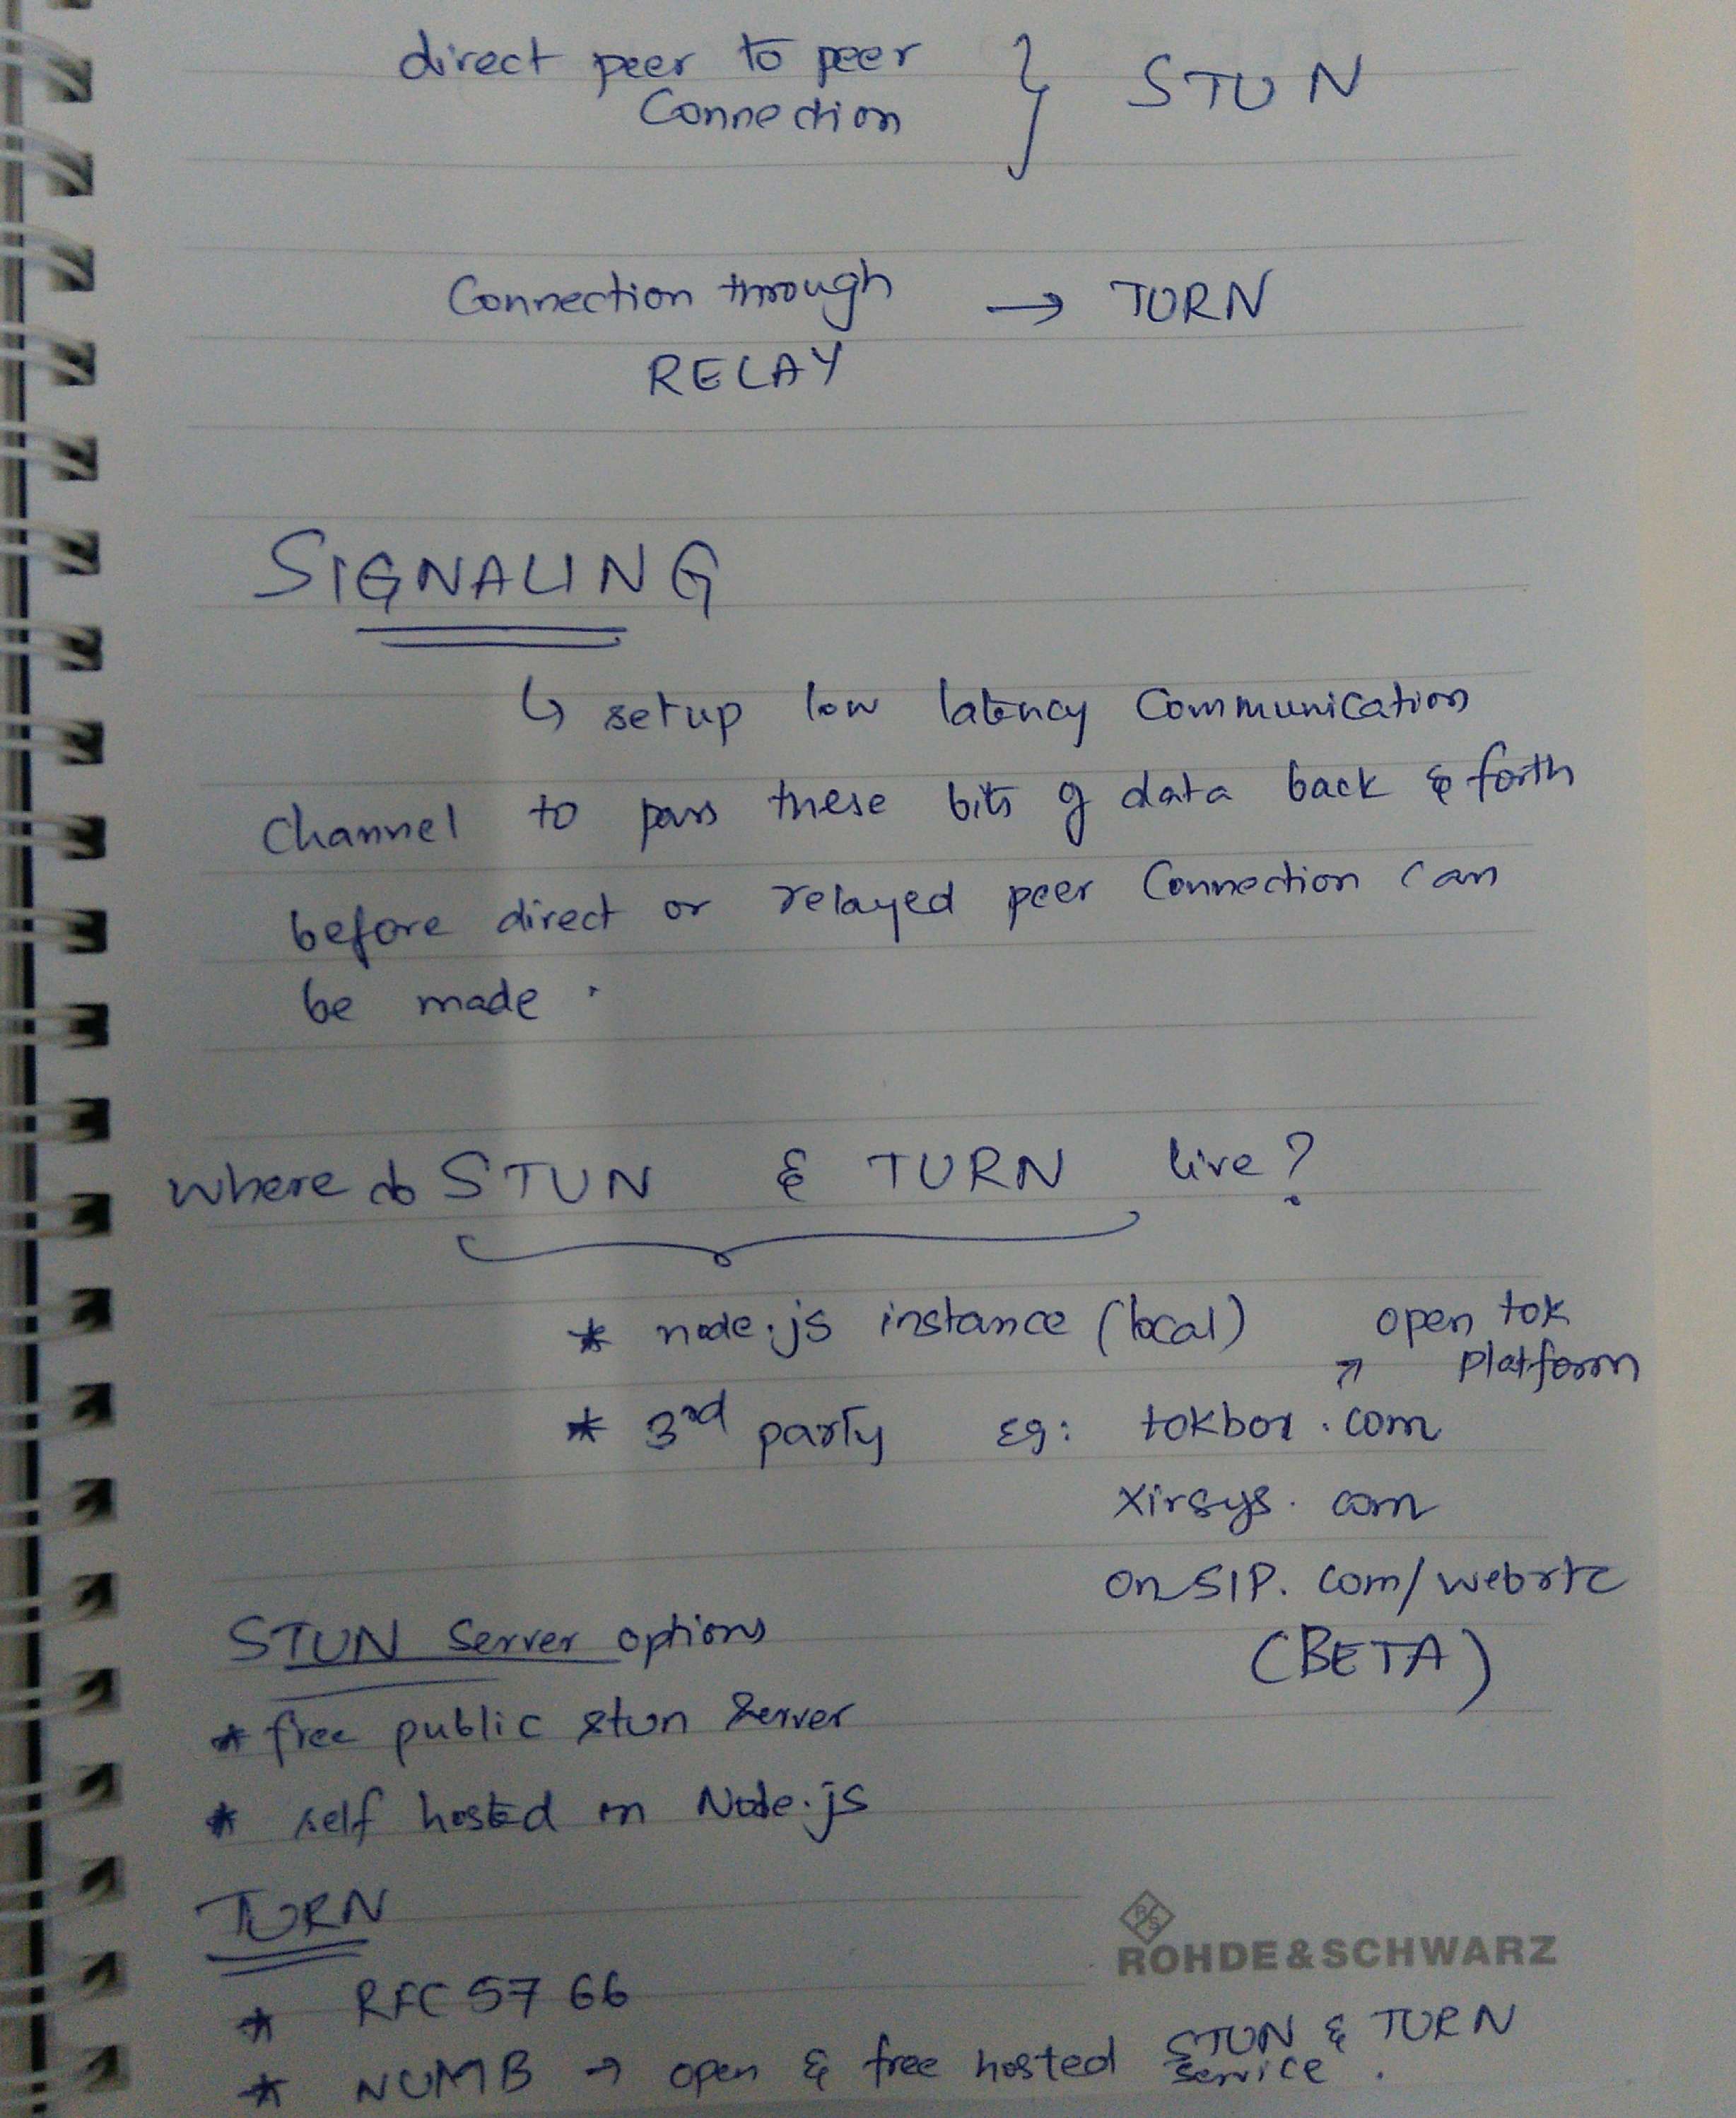 direct peer to peer } STUN
Connection
Connection through → TURN
RELAY
SIGNALING
↳ setup low latency Communication
Channel to pass these bits of data back & forth
before direct or relayed peer Connection can
be made.
Where do STUN & TURN live?
* node.js instance (local)
open tok
platform
* 3rd party Eg: tokbox.com
xirsys.com
onSIP.com/webrtc
(BETA)
STUN Server options
* free public stun Server
* self hosted on Node.js
TURN
* RFC 5766
* NUMB → open & free hosted STUN & TURN
Service.
R&S
ROHDE&SCHWARZ